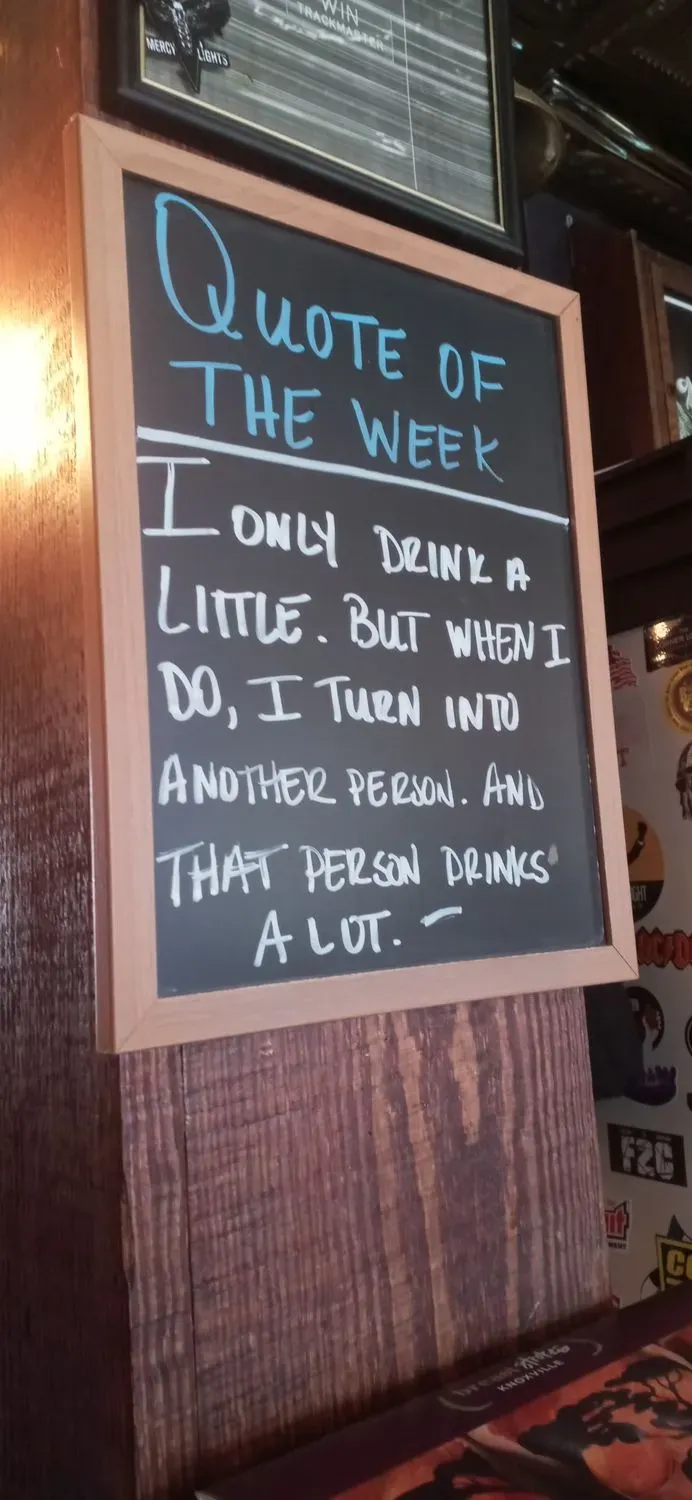 WIN
TRACKMASTER
MERCY LIGHTS
QUOTE OF
THE WEEK
I ONLY DRINK A
LITTLE. BUT WHEN I
DO, I TURN INTO
ANOTHER PERSON. AND
THAT PERSON DRINKS
A LOT. –
F2C
KNOXVILLE